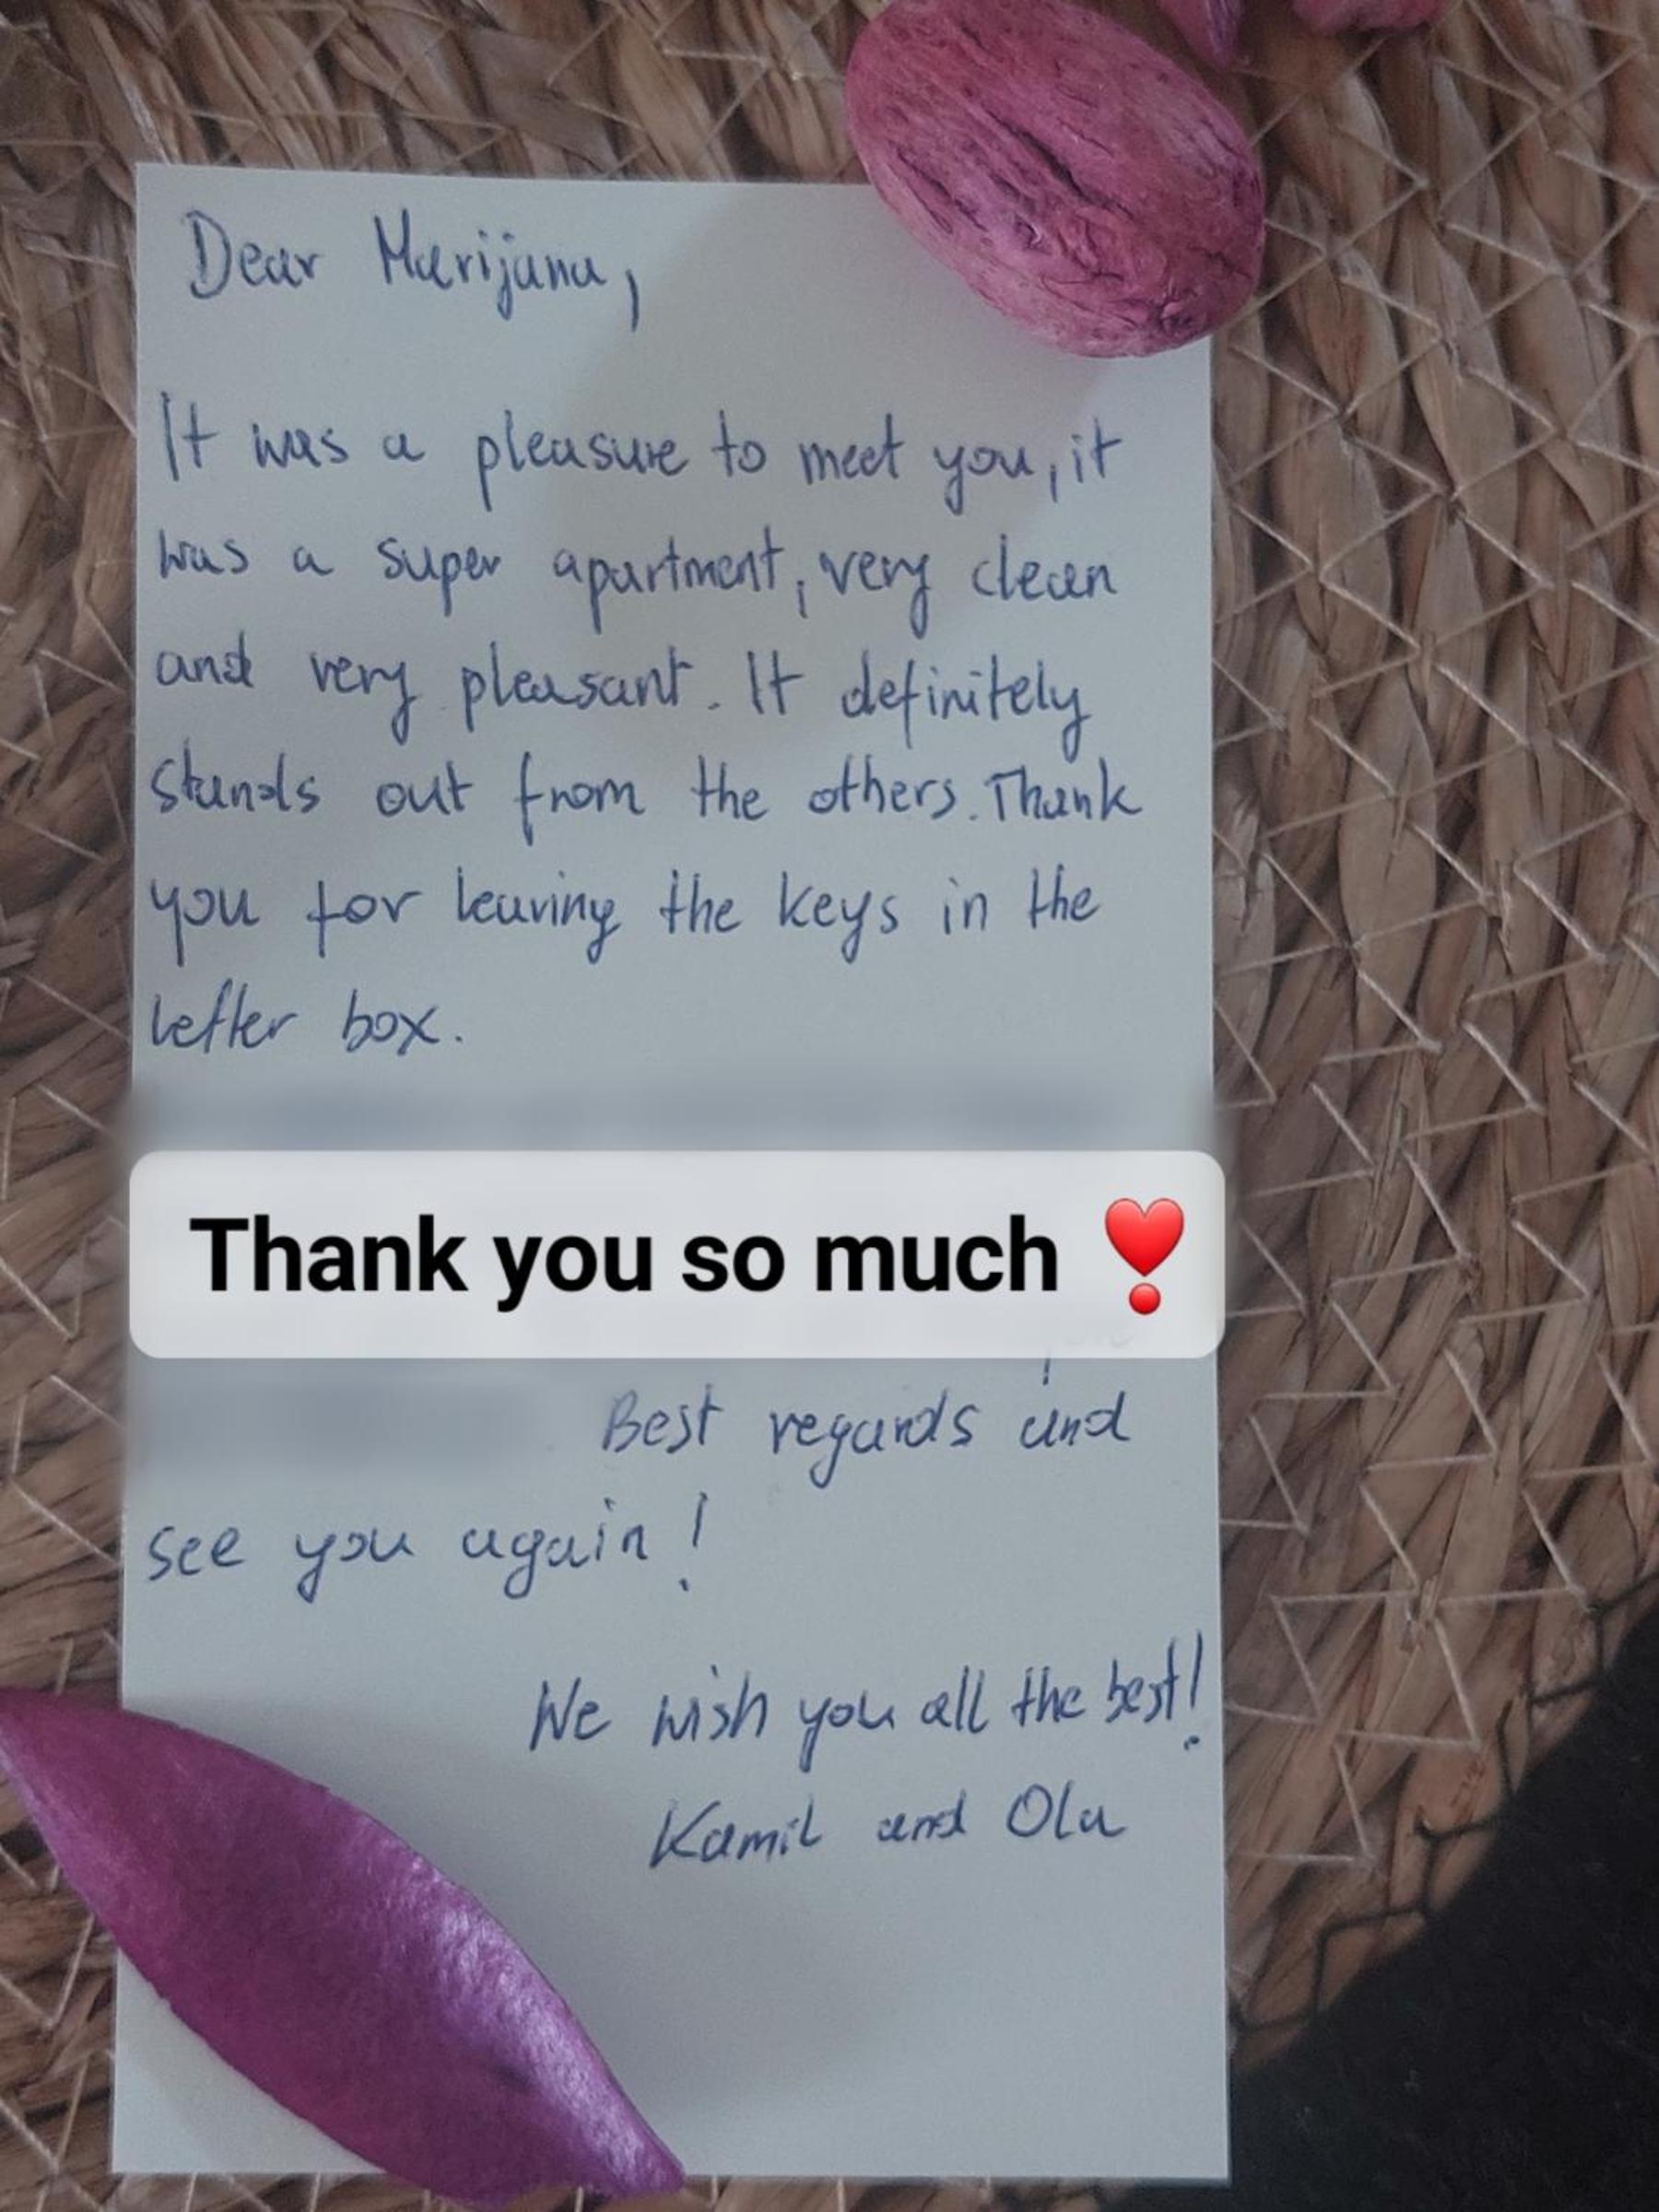 Dear Marijana,
It was a pleasure to meet you, it
was a super apartment, very clean
and very pleasant. It definitely
stands out from the others. Thank
you for leaving the keys in the
letter box.
Thank you so much ❣️
Best regards and
see you again!
We wish you all the best!
Kamil and Ola